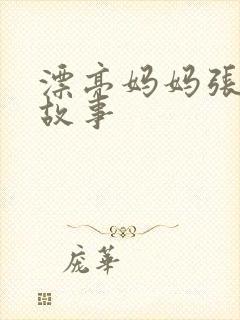 漂亮妈妈張
故事
庞華